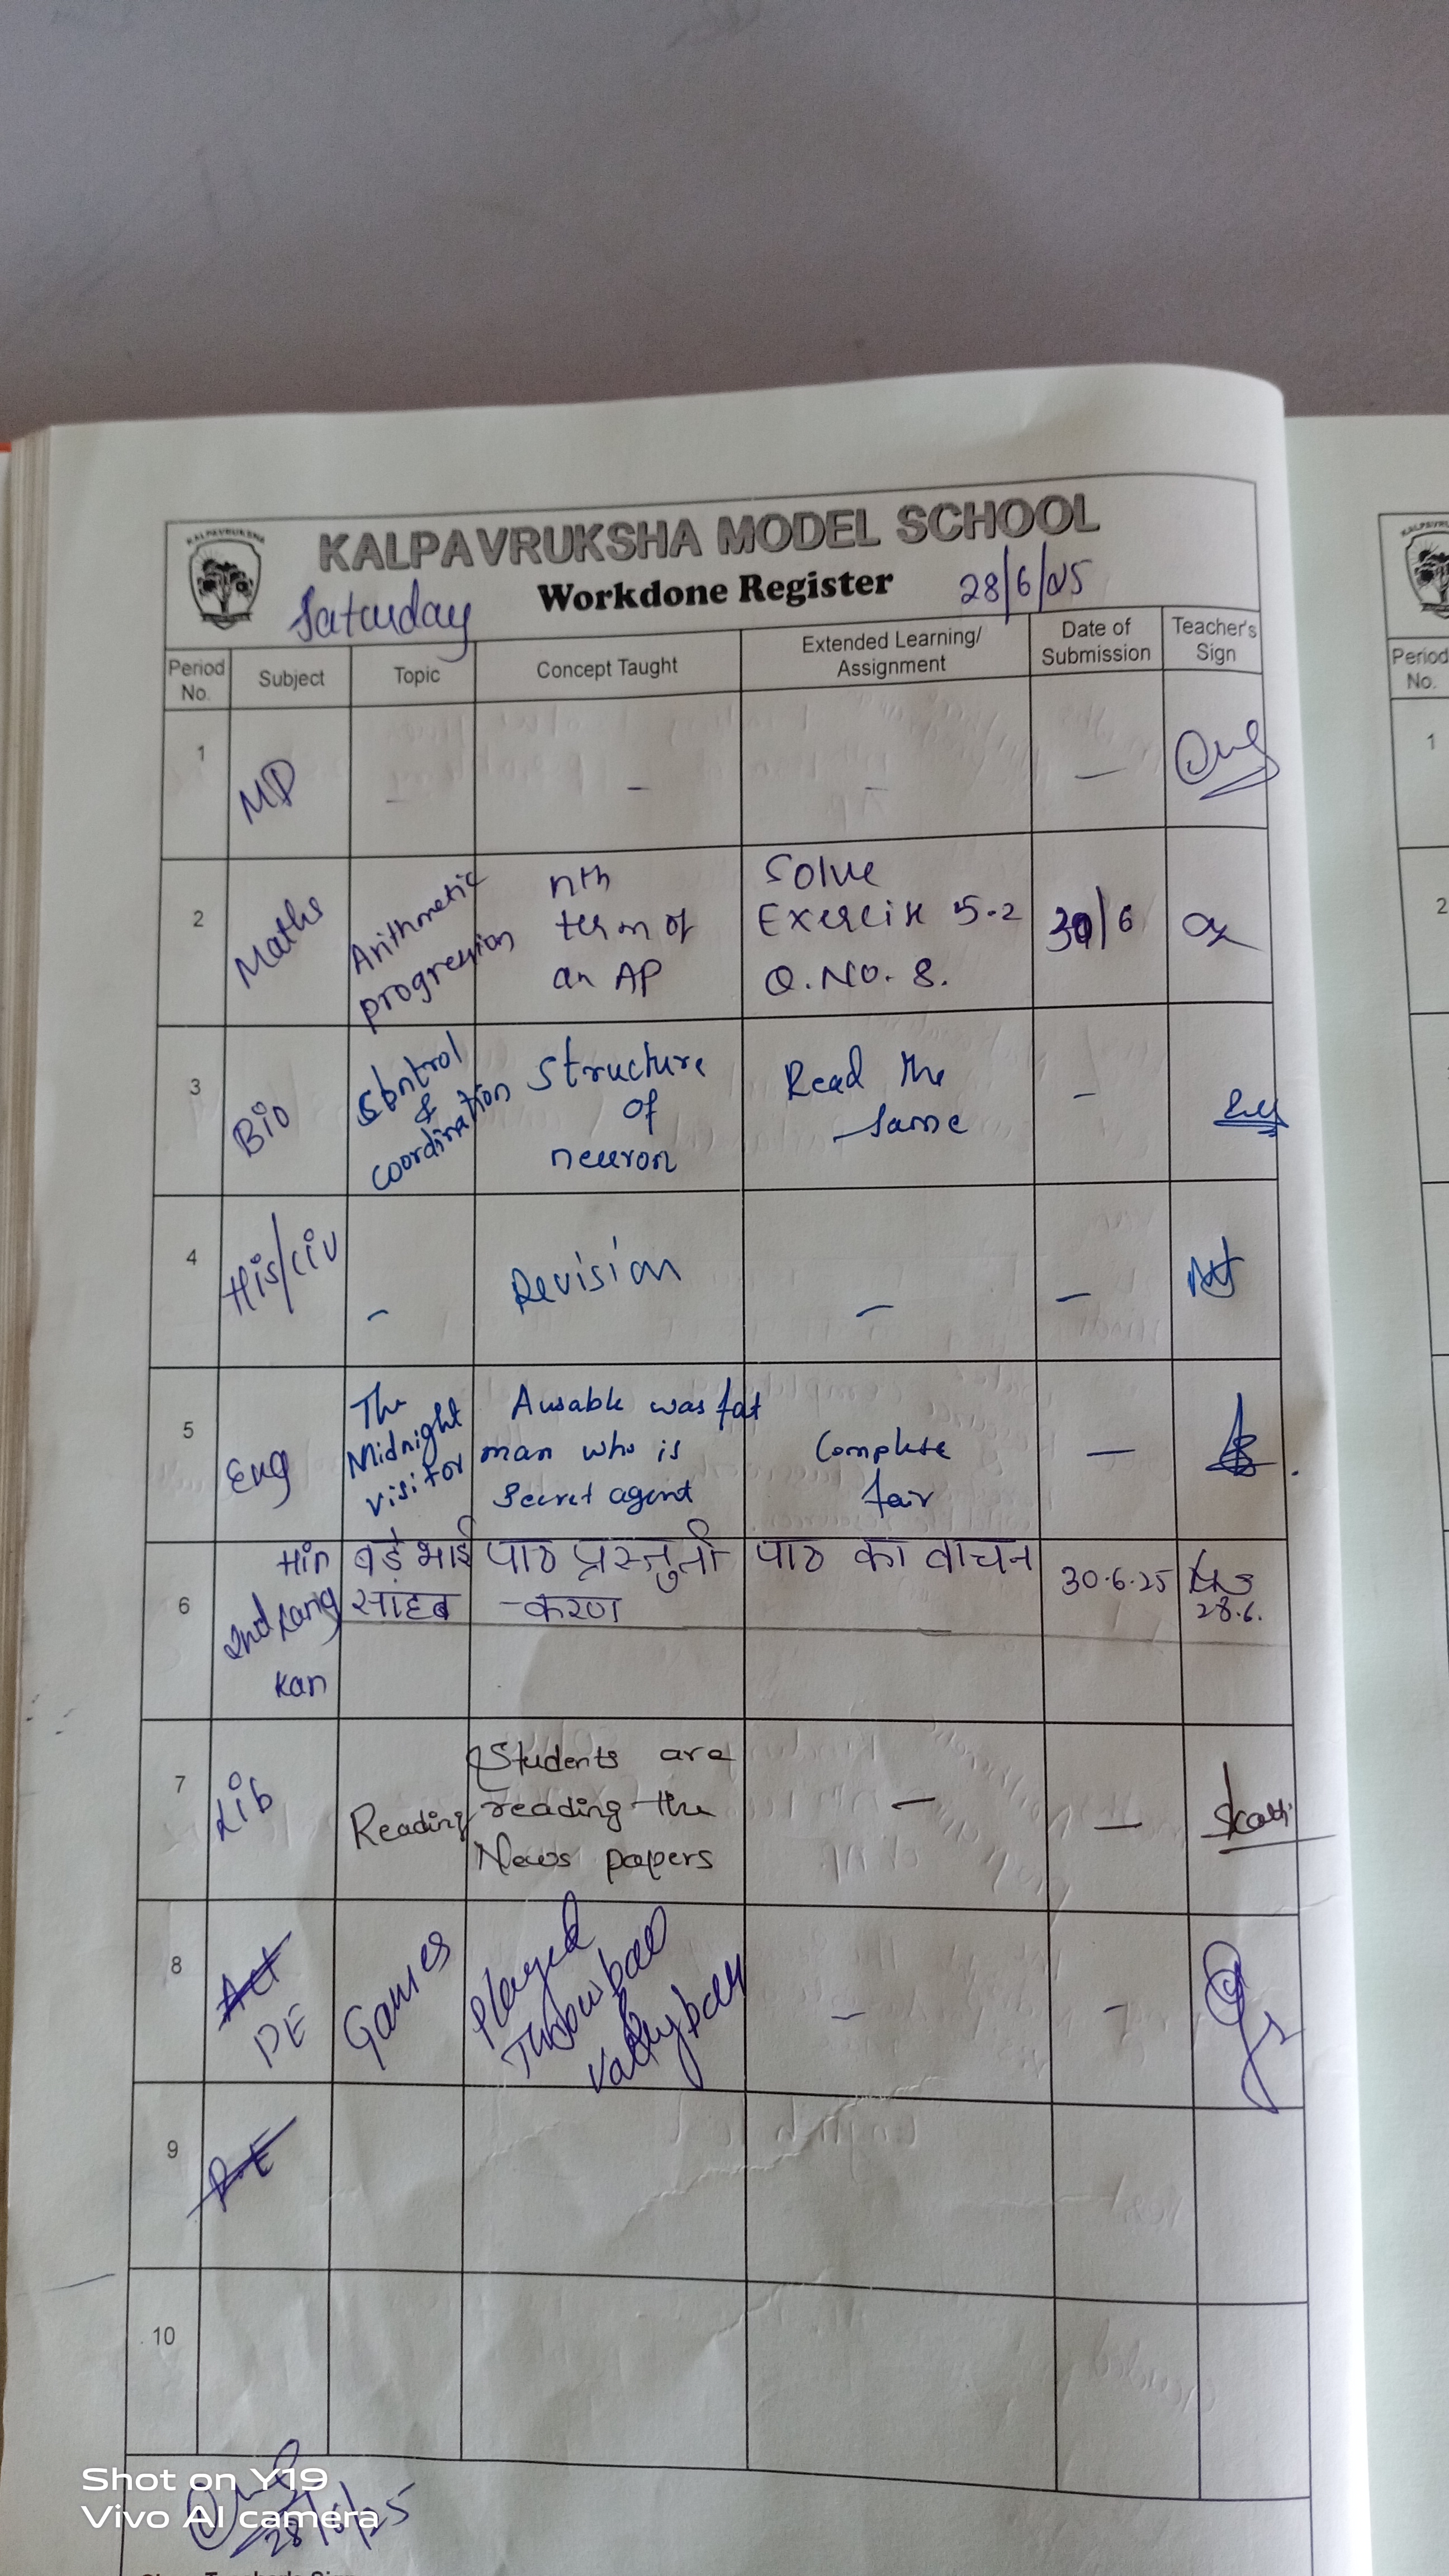 KALPAVRUKSHA
KALPAVRUKSHA MODEL SCHOOL
Saturday Workdone Register 28/6/25
Period No. Subject Topic Concept Taught Extended Learning/ Assignment Date of Submission Teacher's Sign
1 MD - - - -
2 Maths Arithmetic progression nth term of an AP Solve Exercise 5.2 Q.NO. 8. 30/6
3 Bio Control & coordination Structure of neuron Read the same -
4 His/civ - Revision - -
5 Eng The Midnight visitor Ausable was fat man who is Secret agent Complete fair -
6 Hin 2nd Lang Kan बड़े भाई साहब पाठ प्रस्तुती -करण पाठ का वाचन 30.6.25 28.6.
7 Lib Reading Students are reading the News papers - -
8 Act PE Games Played Throwball & Valleyball - -
9 P.E
10
28/6/25
Shot on Y19
Vivo AI camera
Period No.
1
2